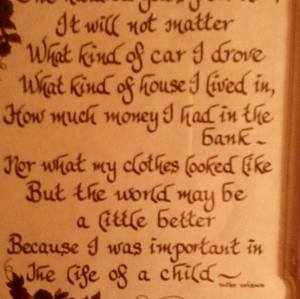 It will not matter
What kind of car I drove
What kind of house I lived in,
How much money I had in the
bank~
Nor what my clothes looked like
But the world may be
a little better
Because I was important in
The life of a child~
author unknown